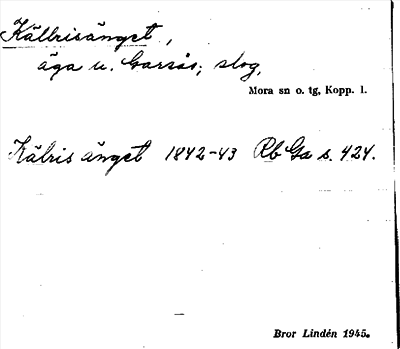 Källrisänget,
äga u. Garsås; slog,
Mora sn o. tg, Kopp. l.
Kälris änget 1842-43 Rb Ga s. 424.
Bror Lindén 1945.